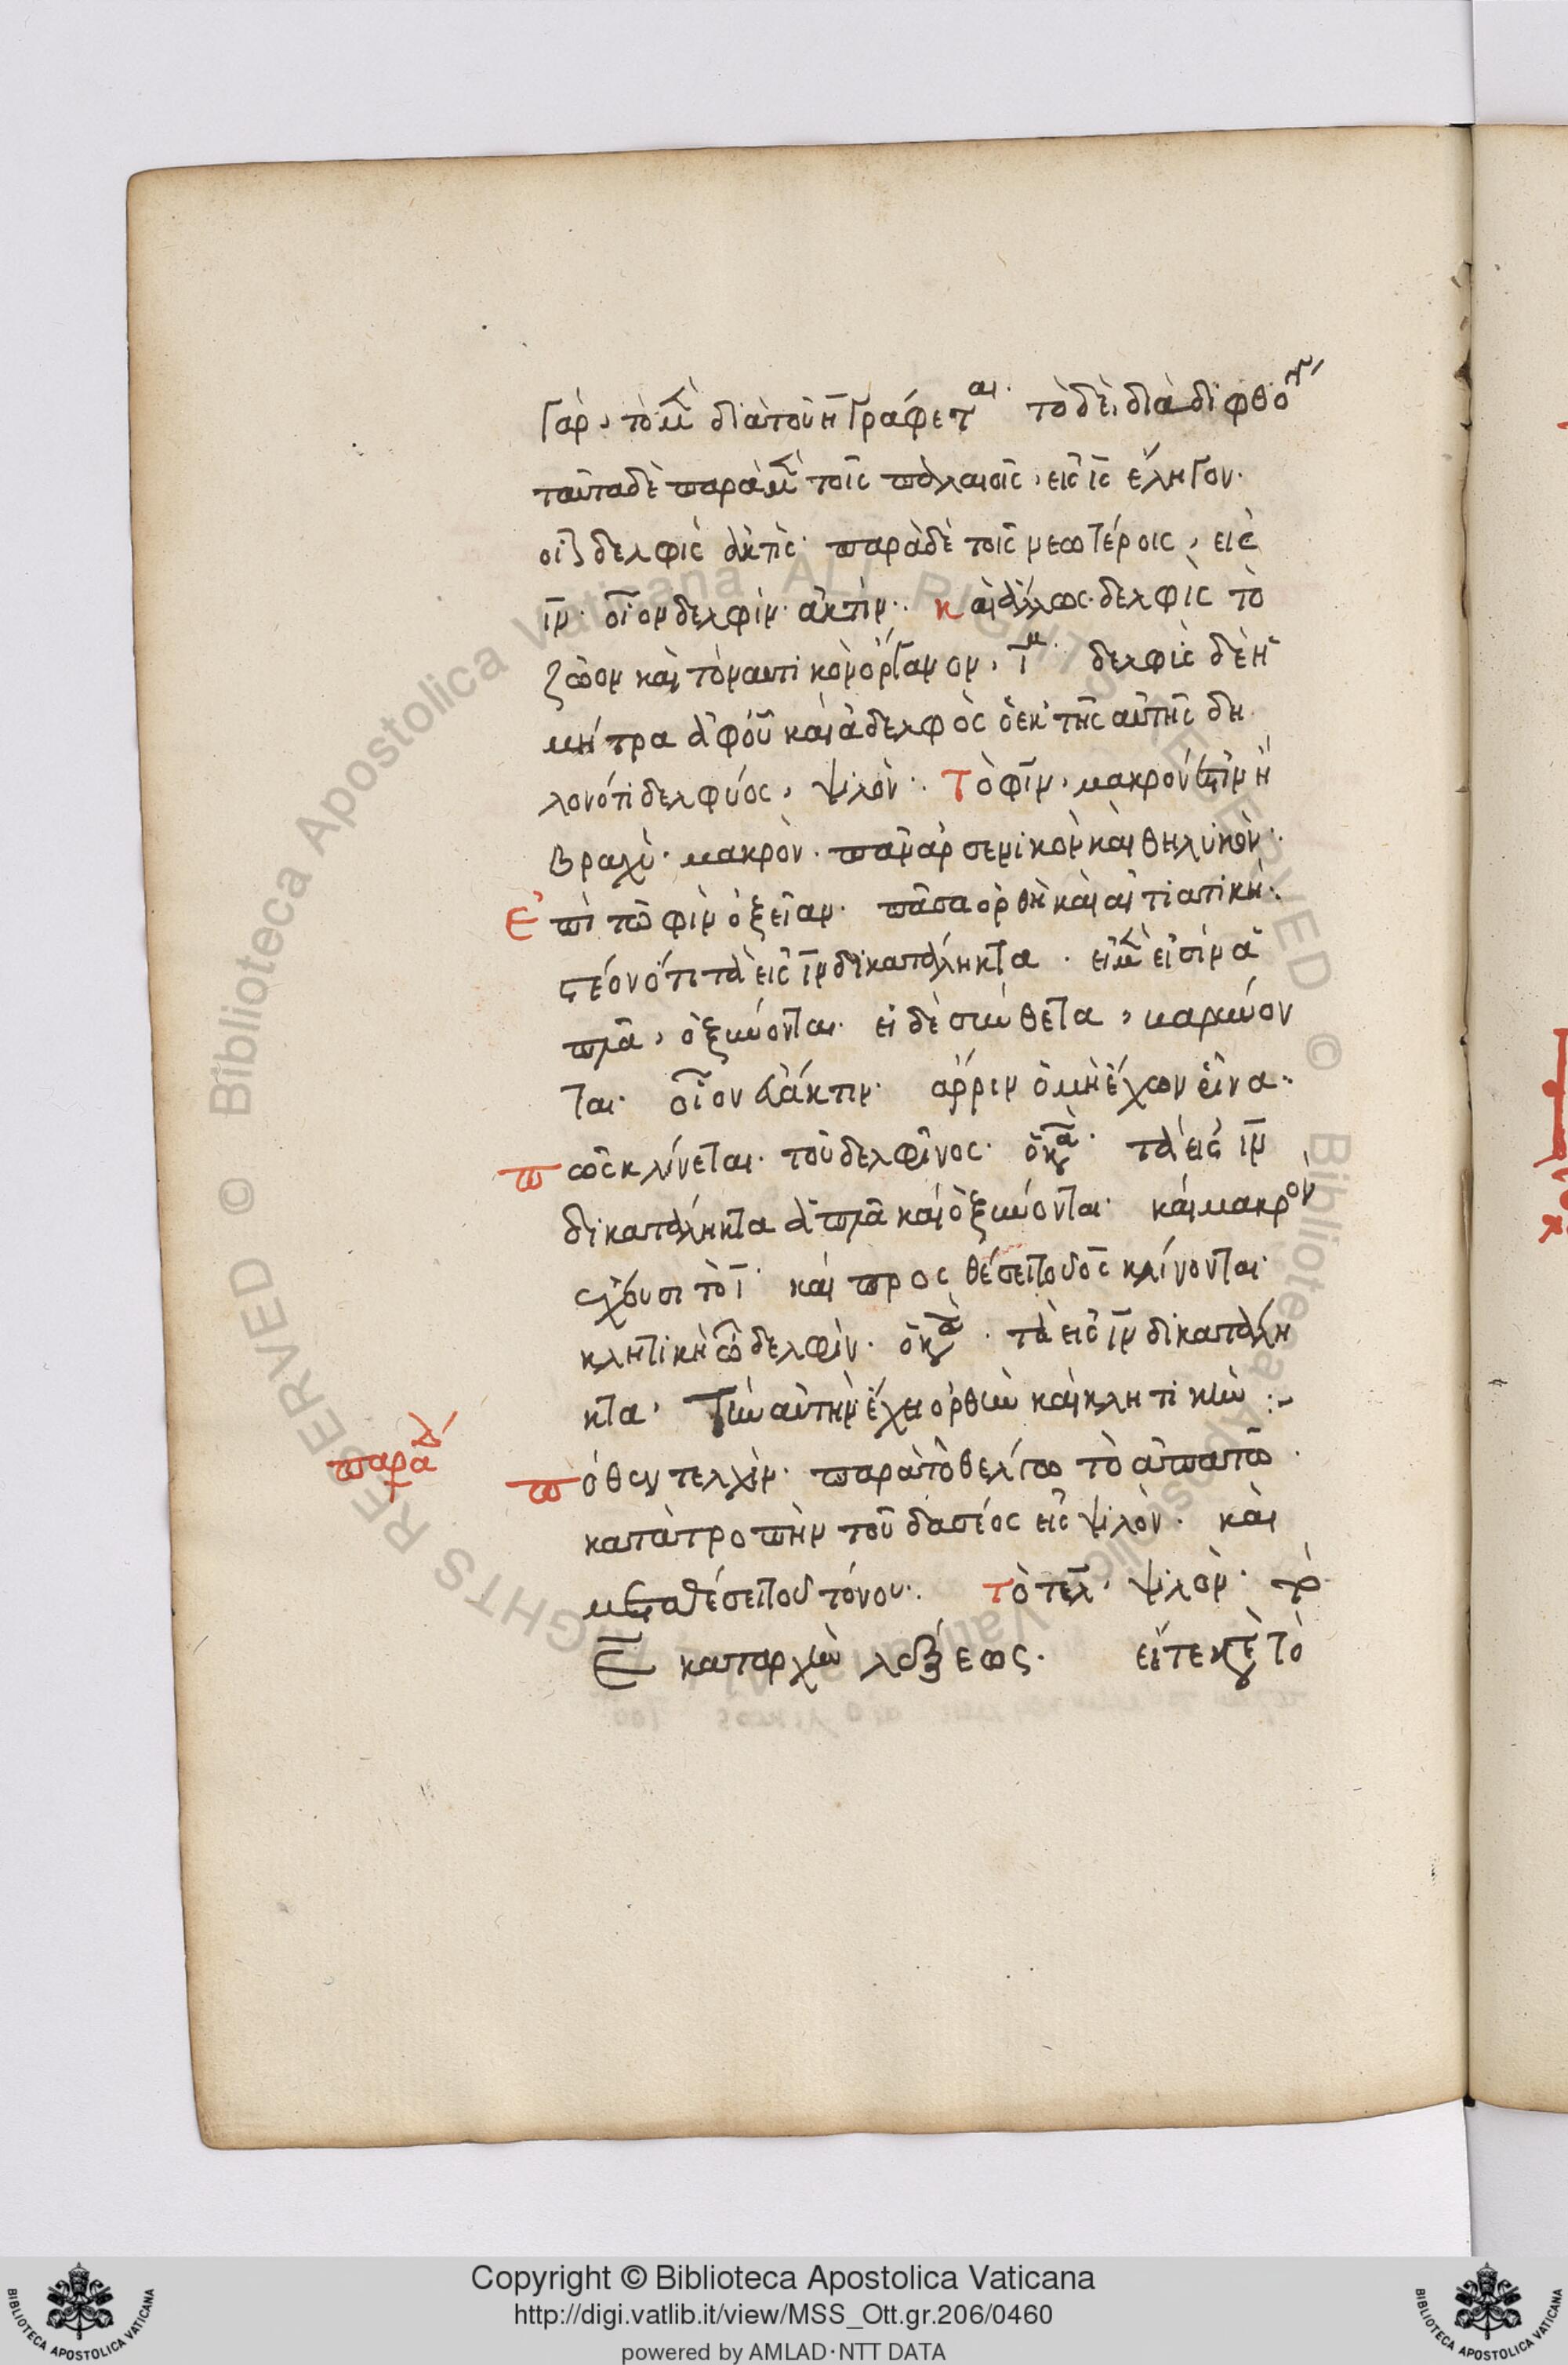 γάρ, τὸ μὲν διὰ τοῦ η γράφεται· τὸ δὲ, διὰ διφθόγγου
ταῦτα δὲ παρὰ μὲν τοῖς παλαιοῖς, εἰς ις ἔληγον·
οἷον δελφὶς ἀκτὶς· παρὰ δὲ τοῖς νεωτέροις, εἰς
ιν· οἷον δελφίν· ἀκτίν· καὶ ἄλλως· δελφὶς τὸ
ζῶον καὶ τὸ ναυτικὸν ὄργανον, ι· δελφὺς δὲ ἡ
μήτρα ἀφ' οὗ καὶ ἀδελφὸς ὁ ἐκ τῆς αὐτῆς δη
λονότι δελφύος, ψιλὸν· Τὸ φιν, μακρόν ἐστιν ἢ
βραχὺ· μακρὸν· πᾶν ἀρσενικὸν καὶ θηλυκὸν·
Ἐπὶ τῶ φιν ὀξεῖαν· πᾶσα ὀρθὴ καὶ αἰτιατική·
στέον ὅτι τὰ εἰς ιν δικατάληκτα· εἰ μὲν εἰσὶν ἁ
πλᾶ, ὀξύνονται· εἰ δὲ σύνθετα, βαρύνον
ται· οἷον ἄκτιν· ἄρριν ὁ μὴ ἔχων ῥῖνα·
πῶς κλίνεται· τοῦ δελφῖνος· ὁ κανὼν· τὰ εἰς ιν
δικατάληκτα ἁπλᾶ καὶ ὀξύνονται· καὶ μακρὸν
ἔχουσι τὸ ι· καὶ προσθέσει τοῦ ος κλίνονται·
κλητικὴ ὦ δελφὶν· ὁ κανὼν· τὰ εἰς ιν δικατάλη
κτα· τὴν αὐτὴν ἔχει ὀρθὴν καὶ κλητικὴν :-
πόθεν τελχὶν· παρὰ τὸ θέλγω τὸ ἀπατῶ·
κατὰ τροπὴν τοῦ δασέος εἰς ψιλὸν· καὶ
μεταθέσει τοῦ τόνου· τὸ τελ, ψιλὸν·
κατ' ἀρχὴν λέξεως· εἴτε κατὰ τὸ
Copyright © Biblioteca Apostolica Vaticana
http://digi.vatlib.it/view/MSS_Ott.gr.206/0460
powered by AMLAD·NTT DATA